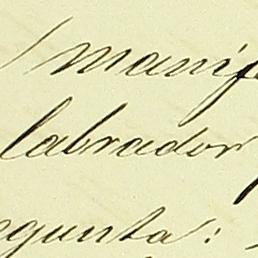 manif
labrador
egunta: